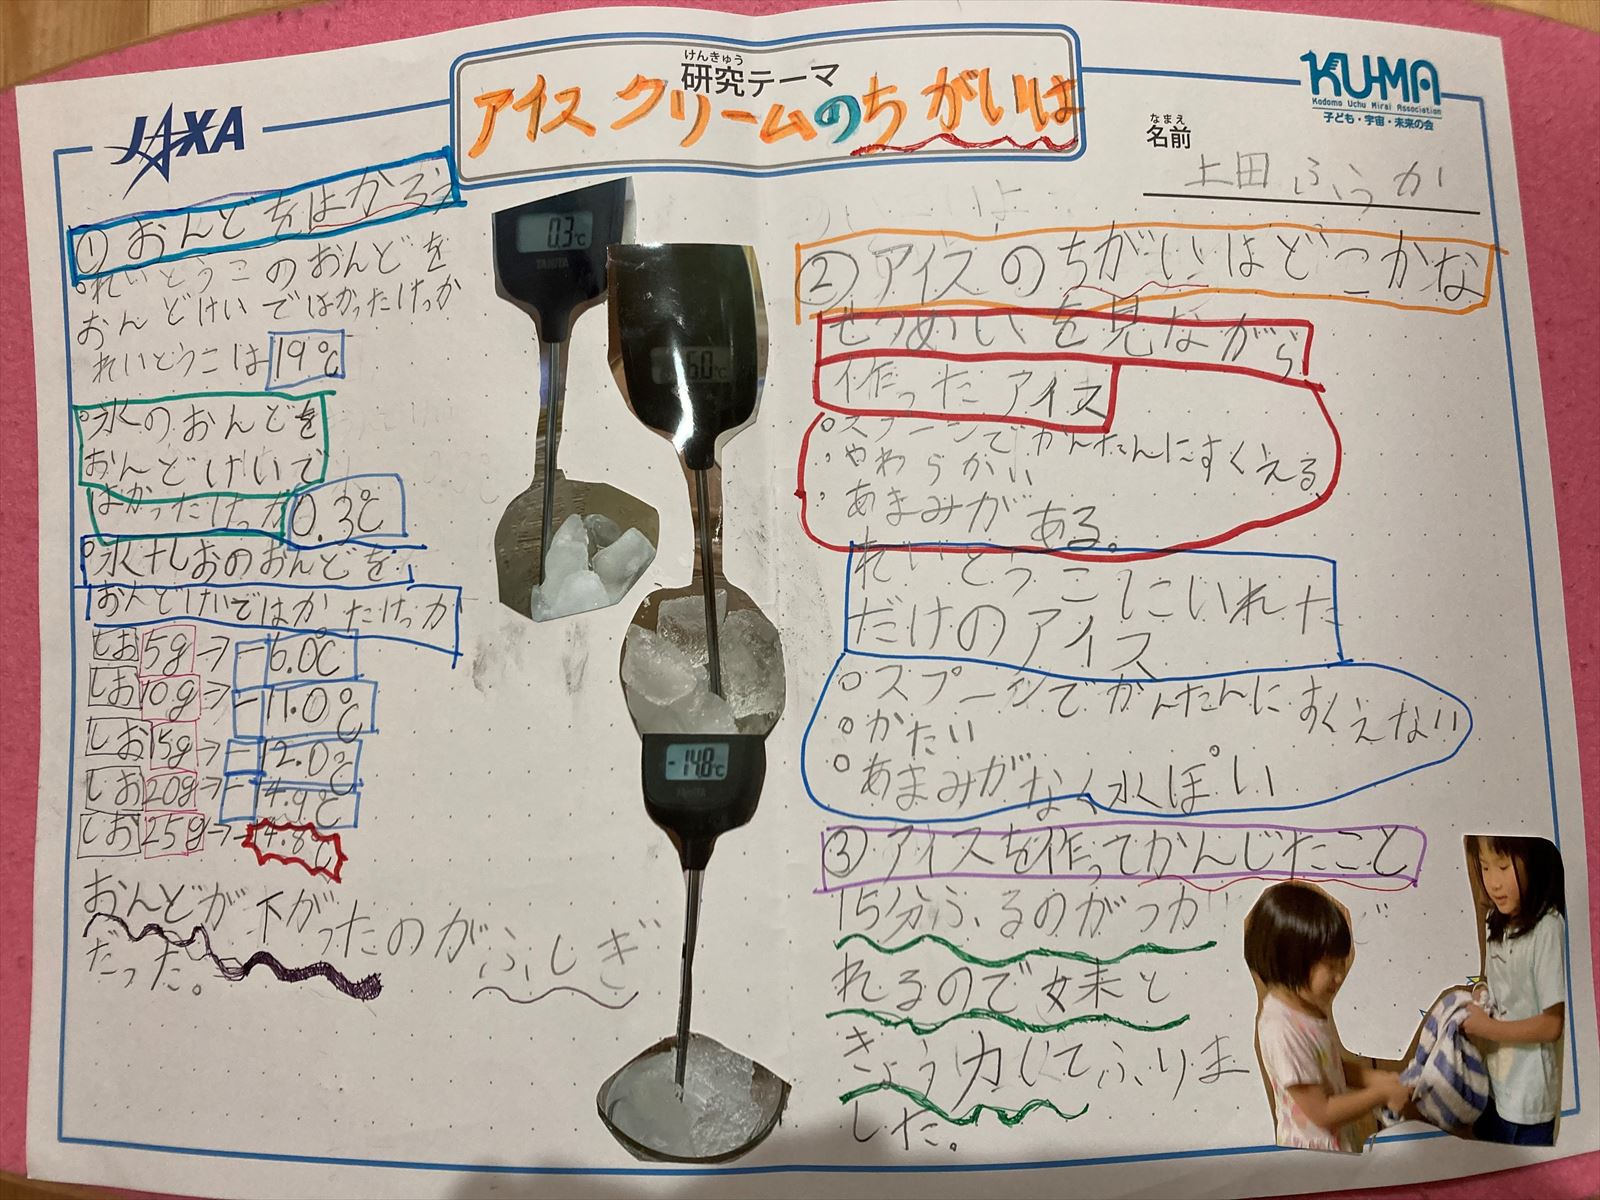 けんきゅう
研究テーマ
アイスクリームのちがいは
JAXA
KU-MA
Kodomo Uchu Mirai Association
子ども・宇宙・未来の会
なまえ
名前
土田ふうか
①おんどをはかる
れいとうこのおんどを
おんどけいではかったけっか
れいとうこは19℃
氷のおんどを
おんどけいで
はかったけっか0.3℃
氷+しおのおんどを
おんどけいではかたけっか
しお5g→-6.0℃
しお10g→-11.0℃
しお15g→-12.0℃
しお20g→-14.9℃
しお25g→-14.8℃
おんどが下がったのがふしぎ
だった。
0.3℃
TANITA
6.0℃
-14.8℃
TANITA
②アイスのちがいはどこかな
せつめいを見ながら
作ったアイス
スプーンでかんたんにすくえる
やわらかい
あまみがある。
れいとうこにいれた
だけのアイス
スプーンでかんたんにすくえない
かたい
あまみがなく水ぽい
③アイスを作ってかんじたこと
15分ふるのがつか
れるので妹と
きょう力してふりま
した。